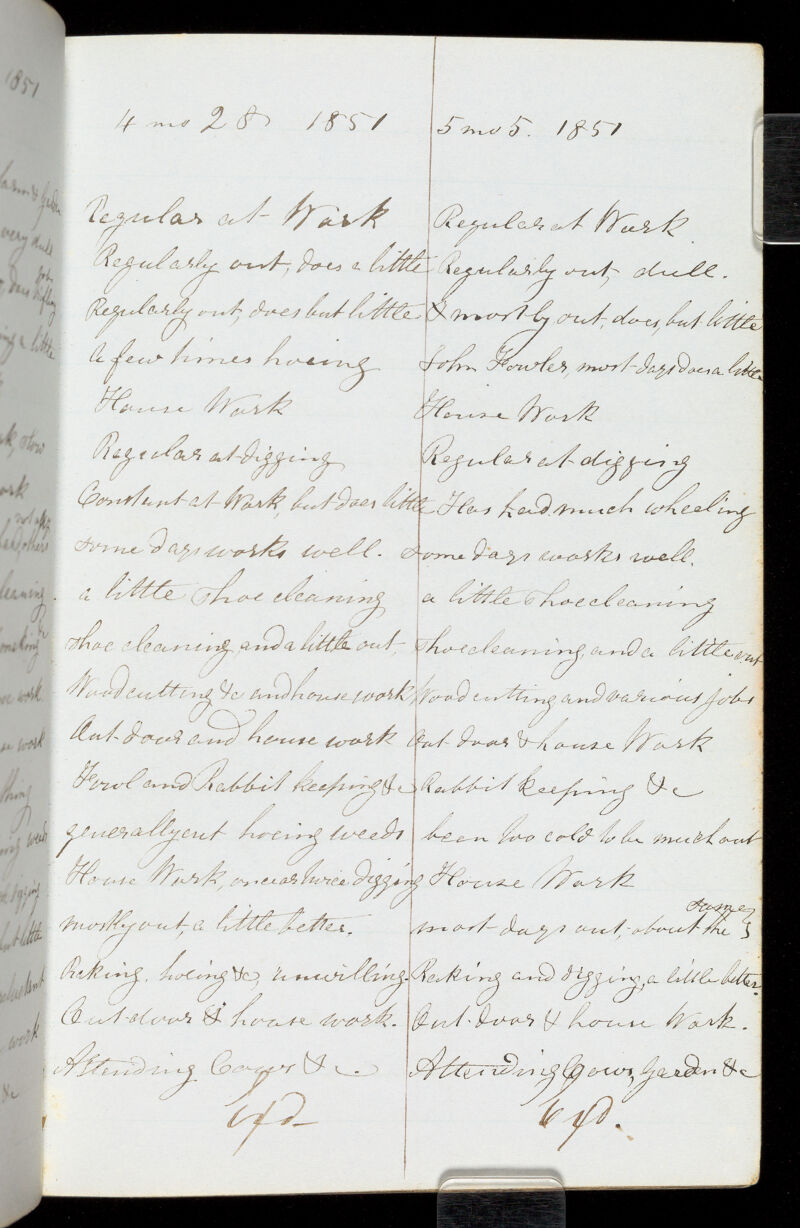 4 mo 28 1851
Regular at Work
Regularly out, does a little
Regularly out, does but little
A few times hoeing
House Work
Regular at digging
Constant at Work, but does little
some days works well.
a little shoe cleaning
shoe cleaning and a little out
Woodcutting &c and house work
Out-door and house work
Fowl and Rabbit keeping &c
generally out hoeing weeds
House Work, once or twice digging
mostly out, a little better.
Raking, hoeing &c, unwilling.
Out door & house work.
Attending Cows &c.
5 mo 5. 1851
Regular at Work
Regularly out, dull.
& mostly out, does, but little
John Fowler, most days does a little
House Work
Regular at digging
Has had much wheeling
some days works well.
a little shoe cleaning
shoe cleaning and a little out
Wood cutting and various jobs
Out door & house Work
Rabbit keeping &c
been too cold to be much out
House Work
most days out, about the same
Raking and digging, a little better.
Out-door & house Work.
Attending Cows, Garden &c